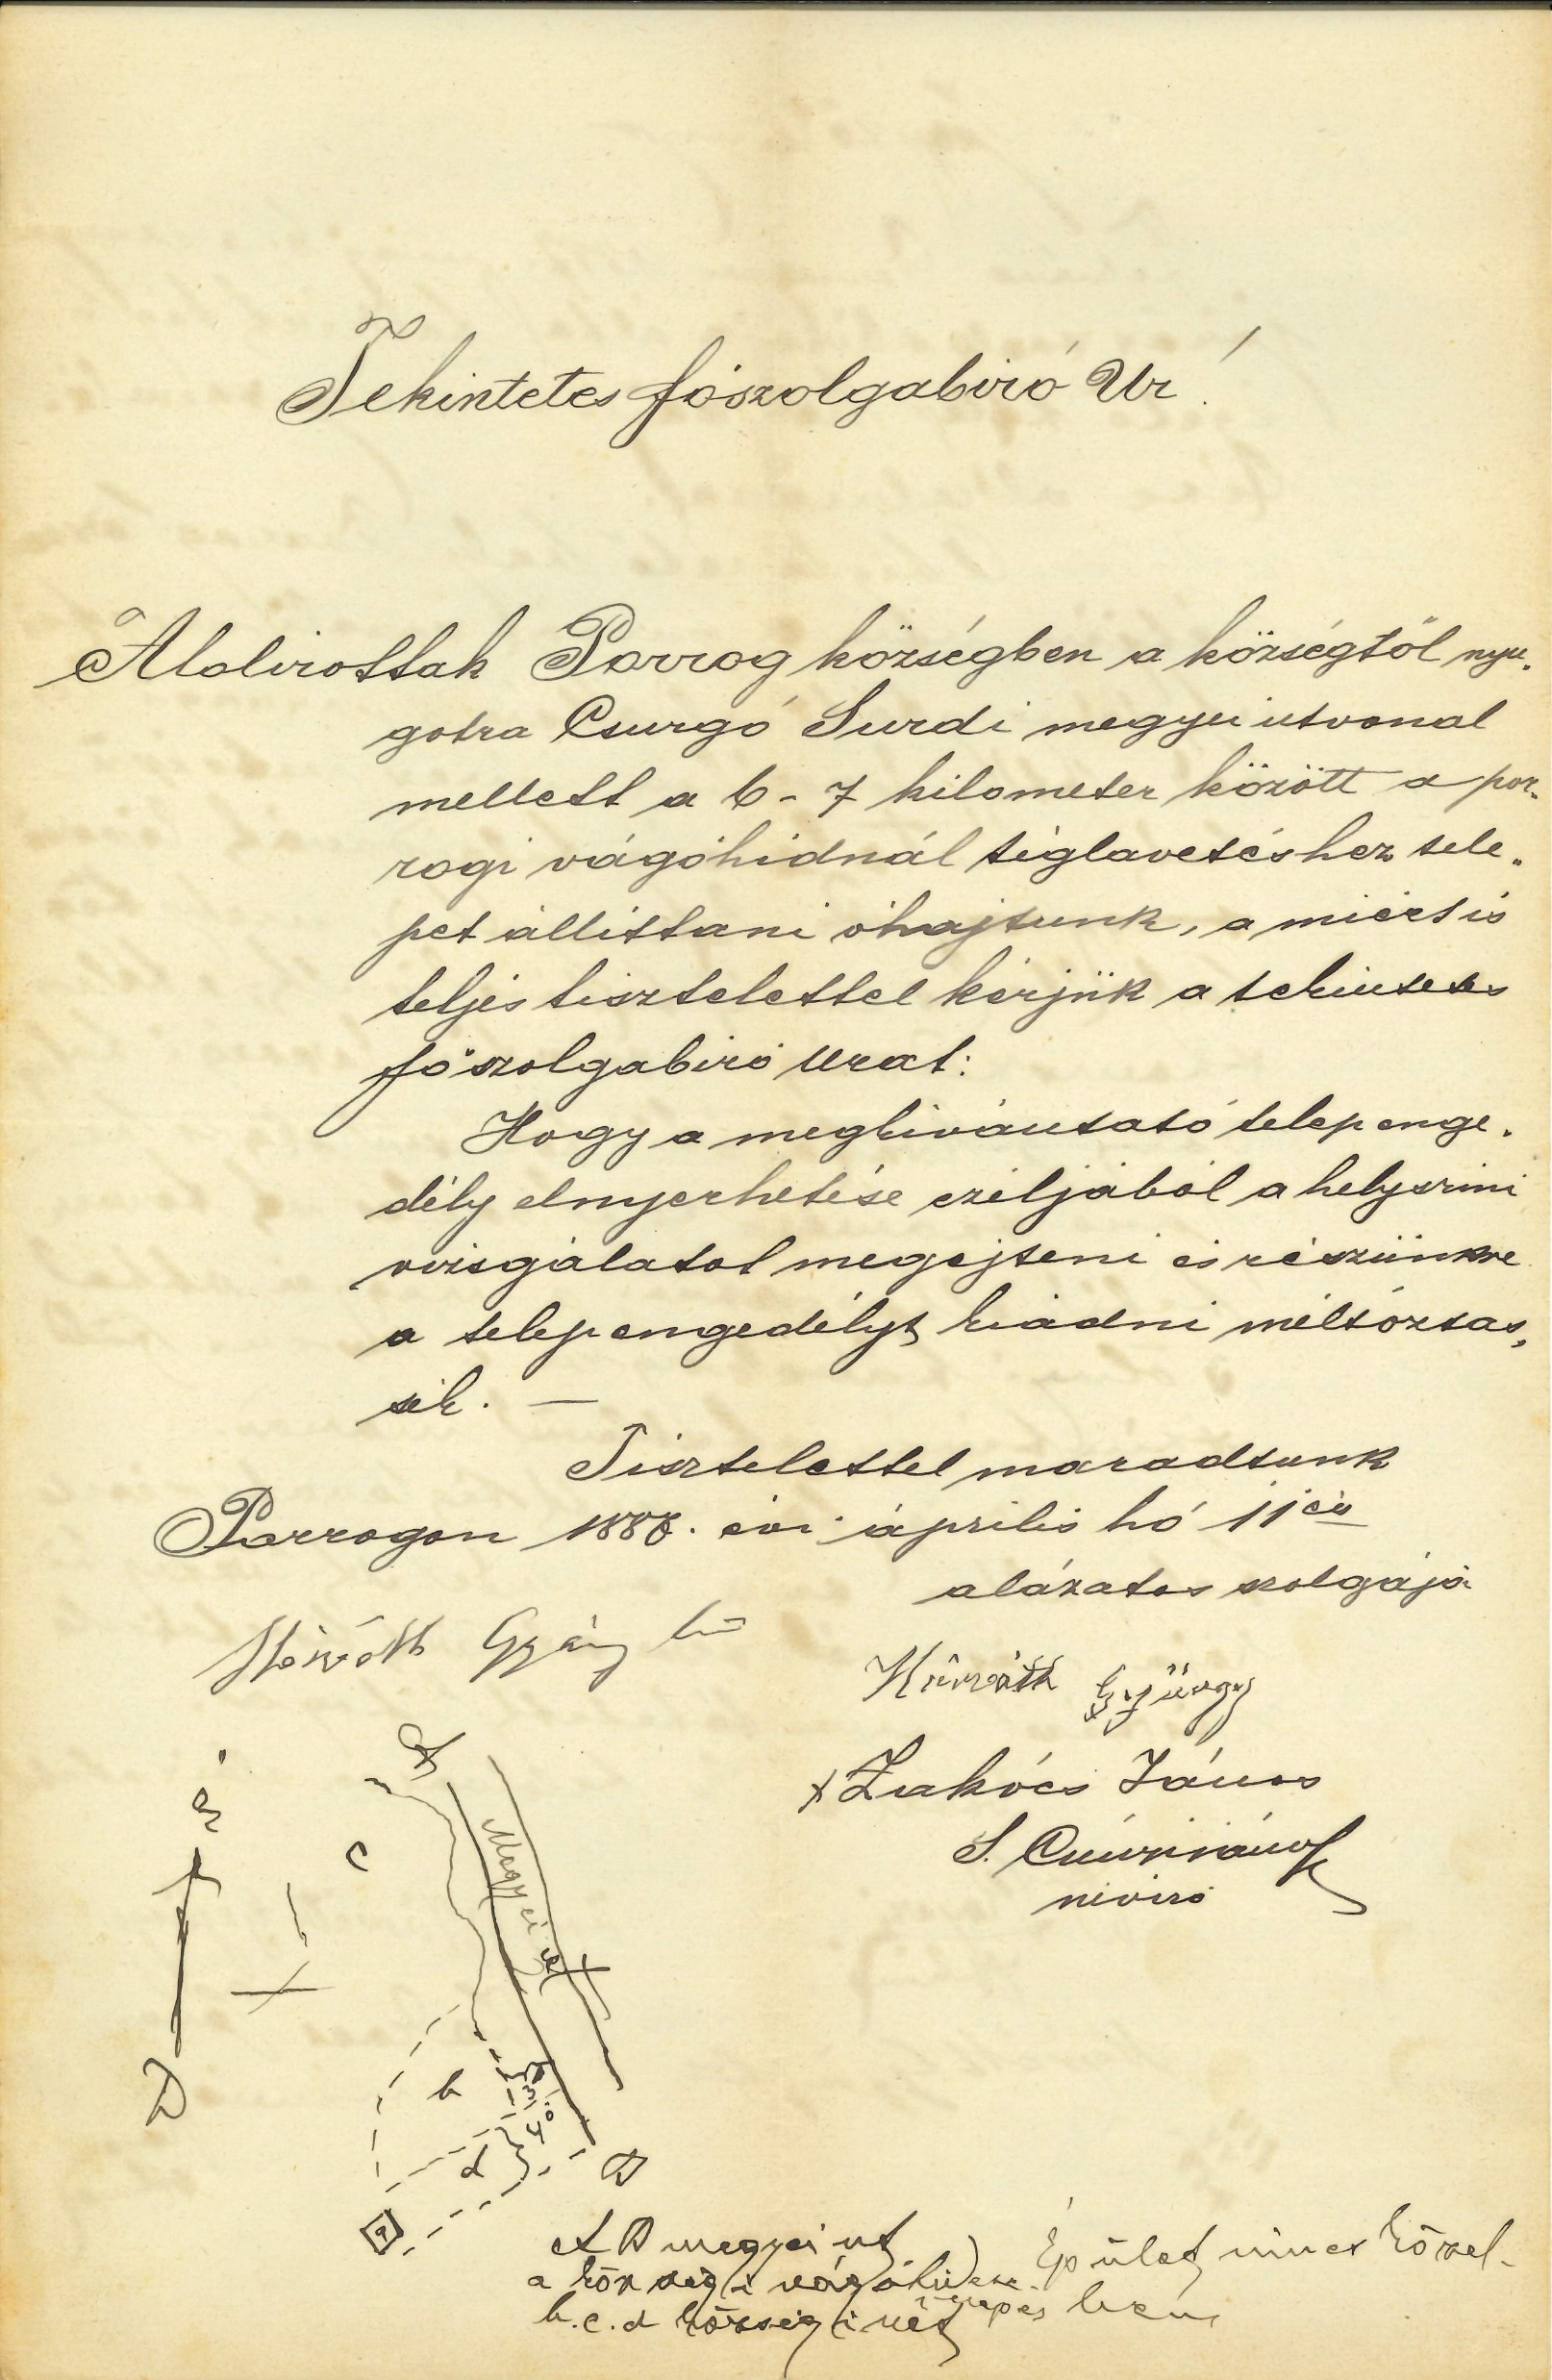 Tekintetes főszolgabiró Ur!
Alolirottak Porrog községben a községtől nyu„
gotra Csurgó Surdi megyei utvonal
mellett a 6-7 kilometer között a por„
rogi vágóhidnál téglavetéshez tele„
pet állittani óhajtunk, a miért is
teljes tisztelettel kérjük a tekintetes
főszolgabiró Urat:
Hogy a megkivántató telep enge„
dély elnyerhetése czéljából a helyszini
vizsgálatot megejteni és részünkre
a telep engedélyt kiádni méltóztas„
sék. —
Tisztelettel maradtunk
Porrogon 1888. évi április hó 11én
alázatos szolgája
Horváth György
Horváth György
x Lukács János
S. János
névíró
É
D
c
Megyei ut
b
d
40
B
a
A B megyei ut
Épület nincs közel-
a községi vágóhid
b. c. d községi rét